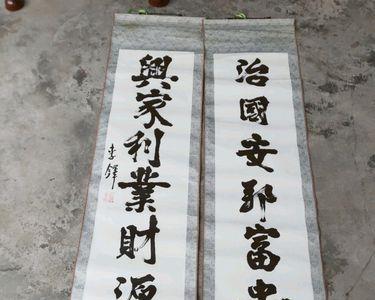 治國安邦富
興家利業財源
李鐸